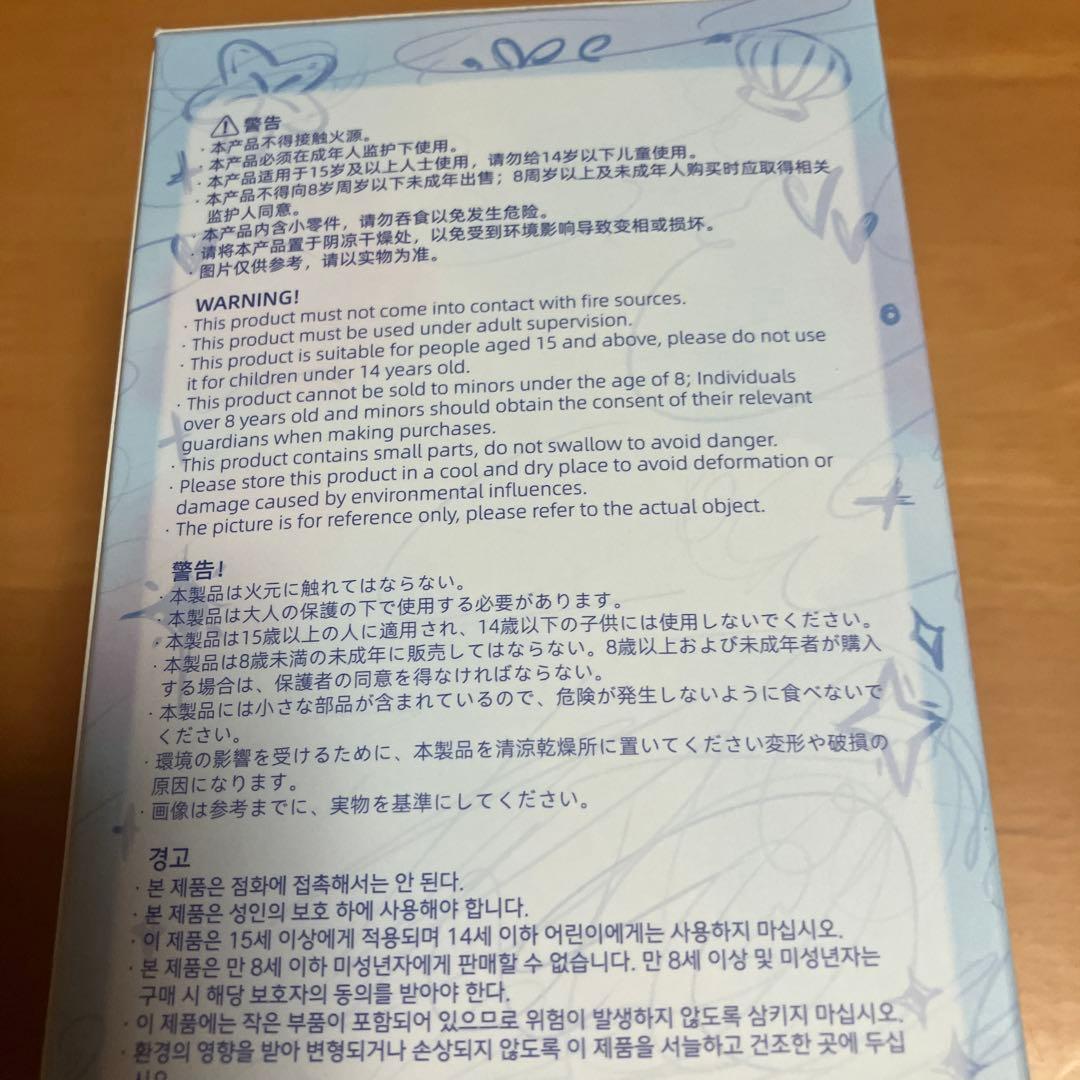 警告
· 本产品不得接触火源。
· 本产品必须在成年人监护下使用。
· 本产品适用于15岁及以上人士使用，请勿给14岁以下儿童使用。
· 本产品不得向8岁周岁以下未成年出售；8周岁以上及未成年人购买时应取得相关
监护人同意。
· 本产品内含小零件，请勿吞食以免发生危险。
· 请将本产品置于阴凉干燥处，以免受到环境影响导致变相或损坏。
· 图片仅供参考，请以实物为准。
WARNING!
· This product must not come into contact with fire sources.
· This product must be used under adult supervision.
· This product is suitable for people aged 15 and above, please do not use
it for children under 14 years old.
· This product cannot be sold to minors under the age of 8; Individuals
over 8 years old and minors should obtain the consent of their relevant
guardians when making purchases.
· This product contains small parts, do not swallow to avoid danger.
· Please store this product in a cool and dry place to avoid deformation or
damage caused by environmental influences.
· The picture is for reference only, please refer to the actual object.
警告!
· 本製品は火元に触れてはならない。
· 本製品は大人の保護の下で使用する必要があります。
· 本製品は15歳以上の人に適用され、14歳以下の子供には使用しないでください。
· 本製品は8歳未満の未成年に販売してはならない。8歳以上および未成年者が購入
する場合は、保護者の同意を得なければならない。
· 本製品には小さな部品が含まれているので、危険が発生しないように食べないで
ください。
· 環境の影響を受けるために、本製品を清涼乾燥所に置いてください変形や破損の
原因になります。
· 画像は参考までに、実物を基準にしてください。
경고
· 본 제품은 점화에 접촉해서는 안 된다.
· 본 제품은 성인의 보호 하에 사용해야 합니다.
· 이 제품은 15세 이상에게 적용되며 14세 이하 어린이에게는 사용하지 마십시오.
· 본 제품은 만 8세 이하 미성년자에게 판매할 수 없습니다. 만 8세 이상 및 미성년자는
구매 시 해당 보호자의 동의를 받아야 한다.
· 이 제품에는 작은 부품이 포함되어 있으므로 위험이 발생하지 않도록 삼키지 마십시오.
· 환경의 영향을 받아 변형되거나 손상되지 않도록 이 제품을 서늘하고 건조한 곳에 두십